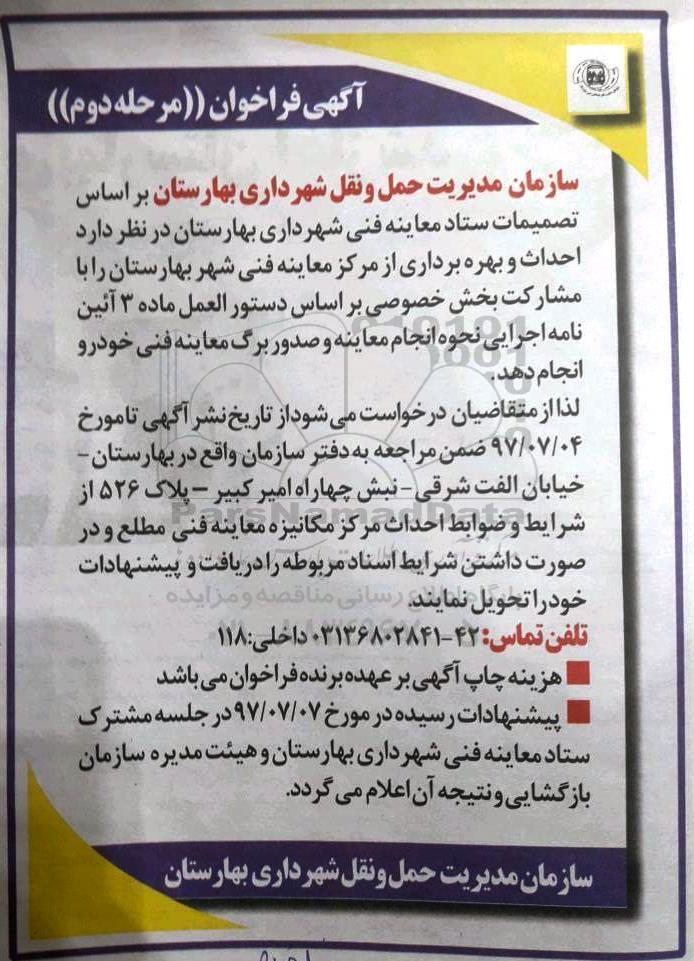 آگهی فراخوان ((مرحله دوم))
سازمان مدیریت حمل و نقل شهرداری بهارستان بر اساس
تصمیمات ستاد معاینه فنی شهرداری بهارستان در نظر دارد
احداث و بهره برداری از مرکز معاینه فنی شهر بهارستان را با
مشارکت بخش خصوصی بر اساس دستور العمل ماده ۳ آئین
نامه اجرایی نحوه انجام معاینه و صدور برگ معاینه فنی خودرو
انجام دهد.
لذا از متقاضیان درخواست می شود از تاریخ نشر آگهی تا مورخ
۹۷/۰۷/۰۴ ضمن مراجعه به دفتر سازمان واقع در بهارستان -
خیابان الفت شرقی - نبش چهارراه امیر کبیر – پلاک ۵۲۶ از
شرایط و ضوابط احداث مرکز مکانیزه معاینه فنی مطلع و در
صورت داشتن شرایط اسناد مربوطه را دریافت و پیشنهادات
خود را تحویل نمایند.
تلفن تماس: ۴۲-۰۳۱۳۶۸۰۲۸۴۱ داخلی: ۱۱۸
هزینه چاپ آگهی بر عهده برنده فراخوان می باشد
پیشنهادات رسیده در مورخ ۹۷/۰۷/۰۷ در جلسه مشترک
ستاد معاینه فنی شهرداری بهارستان و هیئت مدیره سازمان
بازگشایی و نتیجه آن اعلام می گردد.
سازمان مدیریت حمل و نقل شهرداری بهارستان
ParsNamadData
پایگاه اطلاع رسانی مناقصه و مزایده